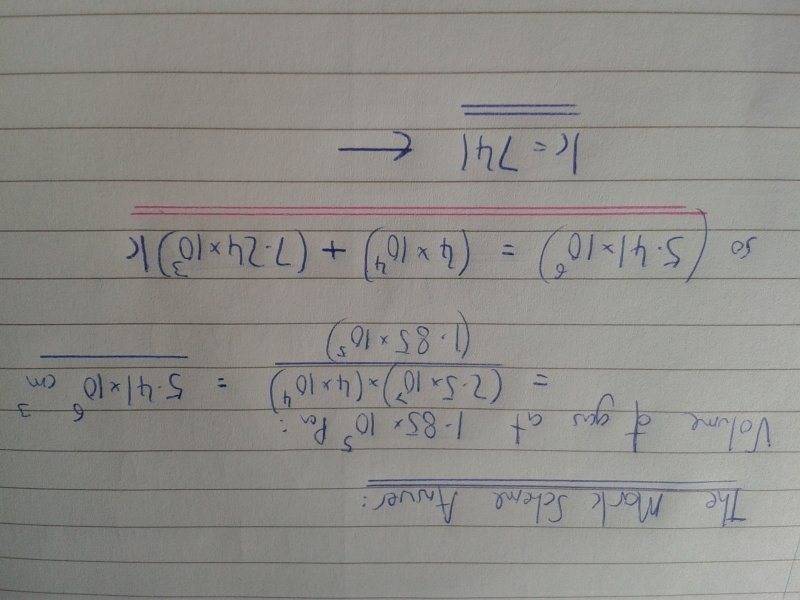 The Mark Scheme Answer:
Volume of gas at 1.85 × 10⁵ Pa:
= (2.5 × 10⁷) × (4 × 10⁴) / (1.85 × 10⁵) = 5.41 × 10⁶ cm³
so (5.41 × 10⁶) = (4 × 10⁴) + (7.24 × 10³)K
K = 741 ←